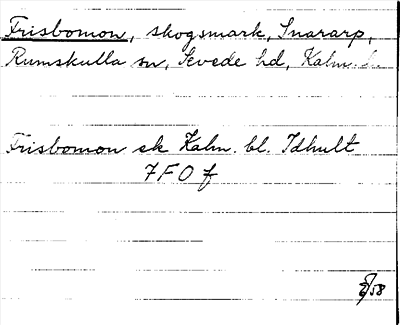 Frisbomon, skogsmark, Snararp,
Rumskulla sn, Sevede hd, Kalm. l.
Frisbomon ek Kalm. bl. Idhult
7 F 0 f
58